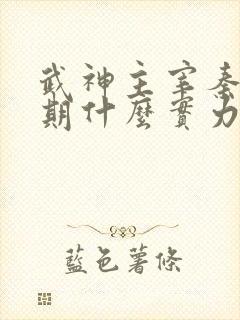 武神主宰秦
期什麼實力
藍色薯條